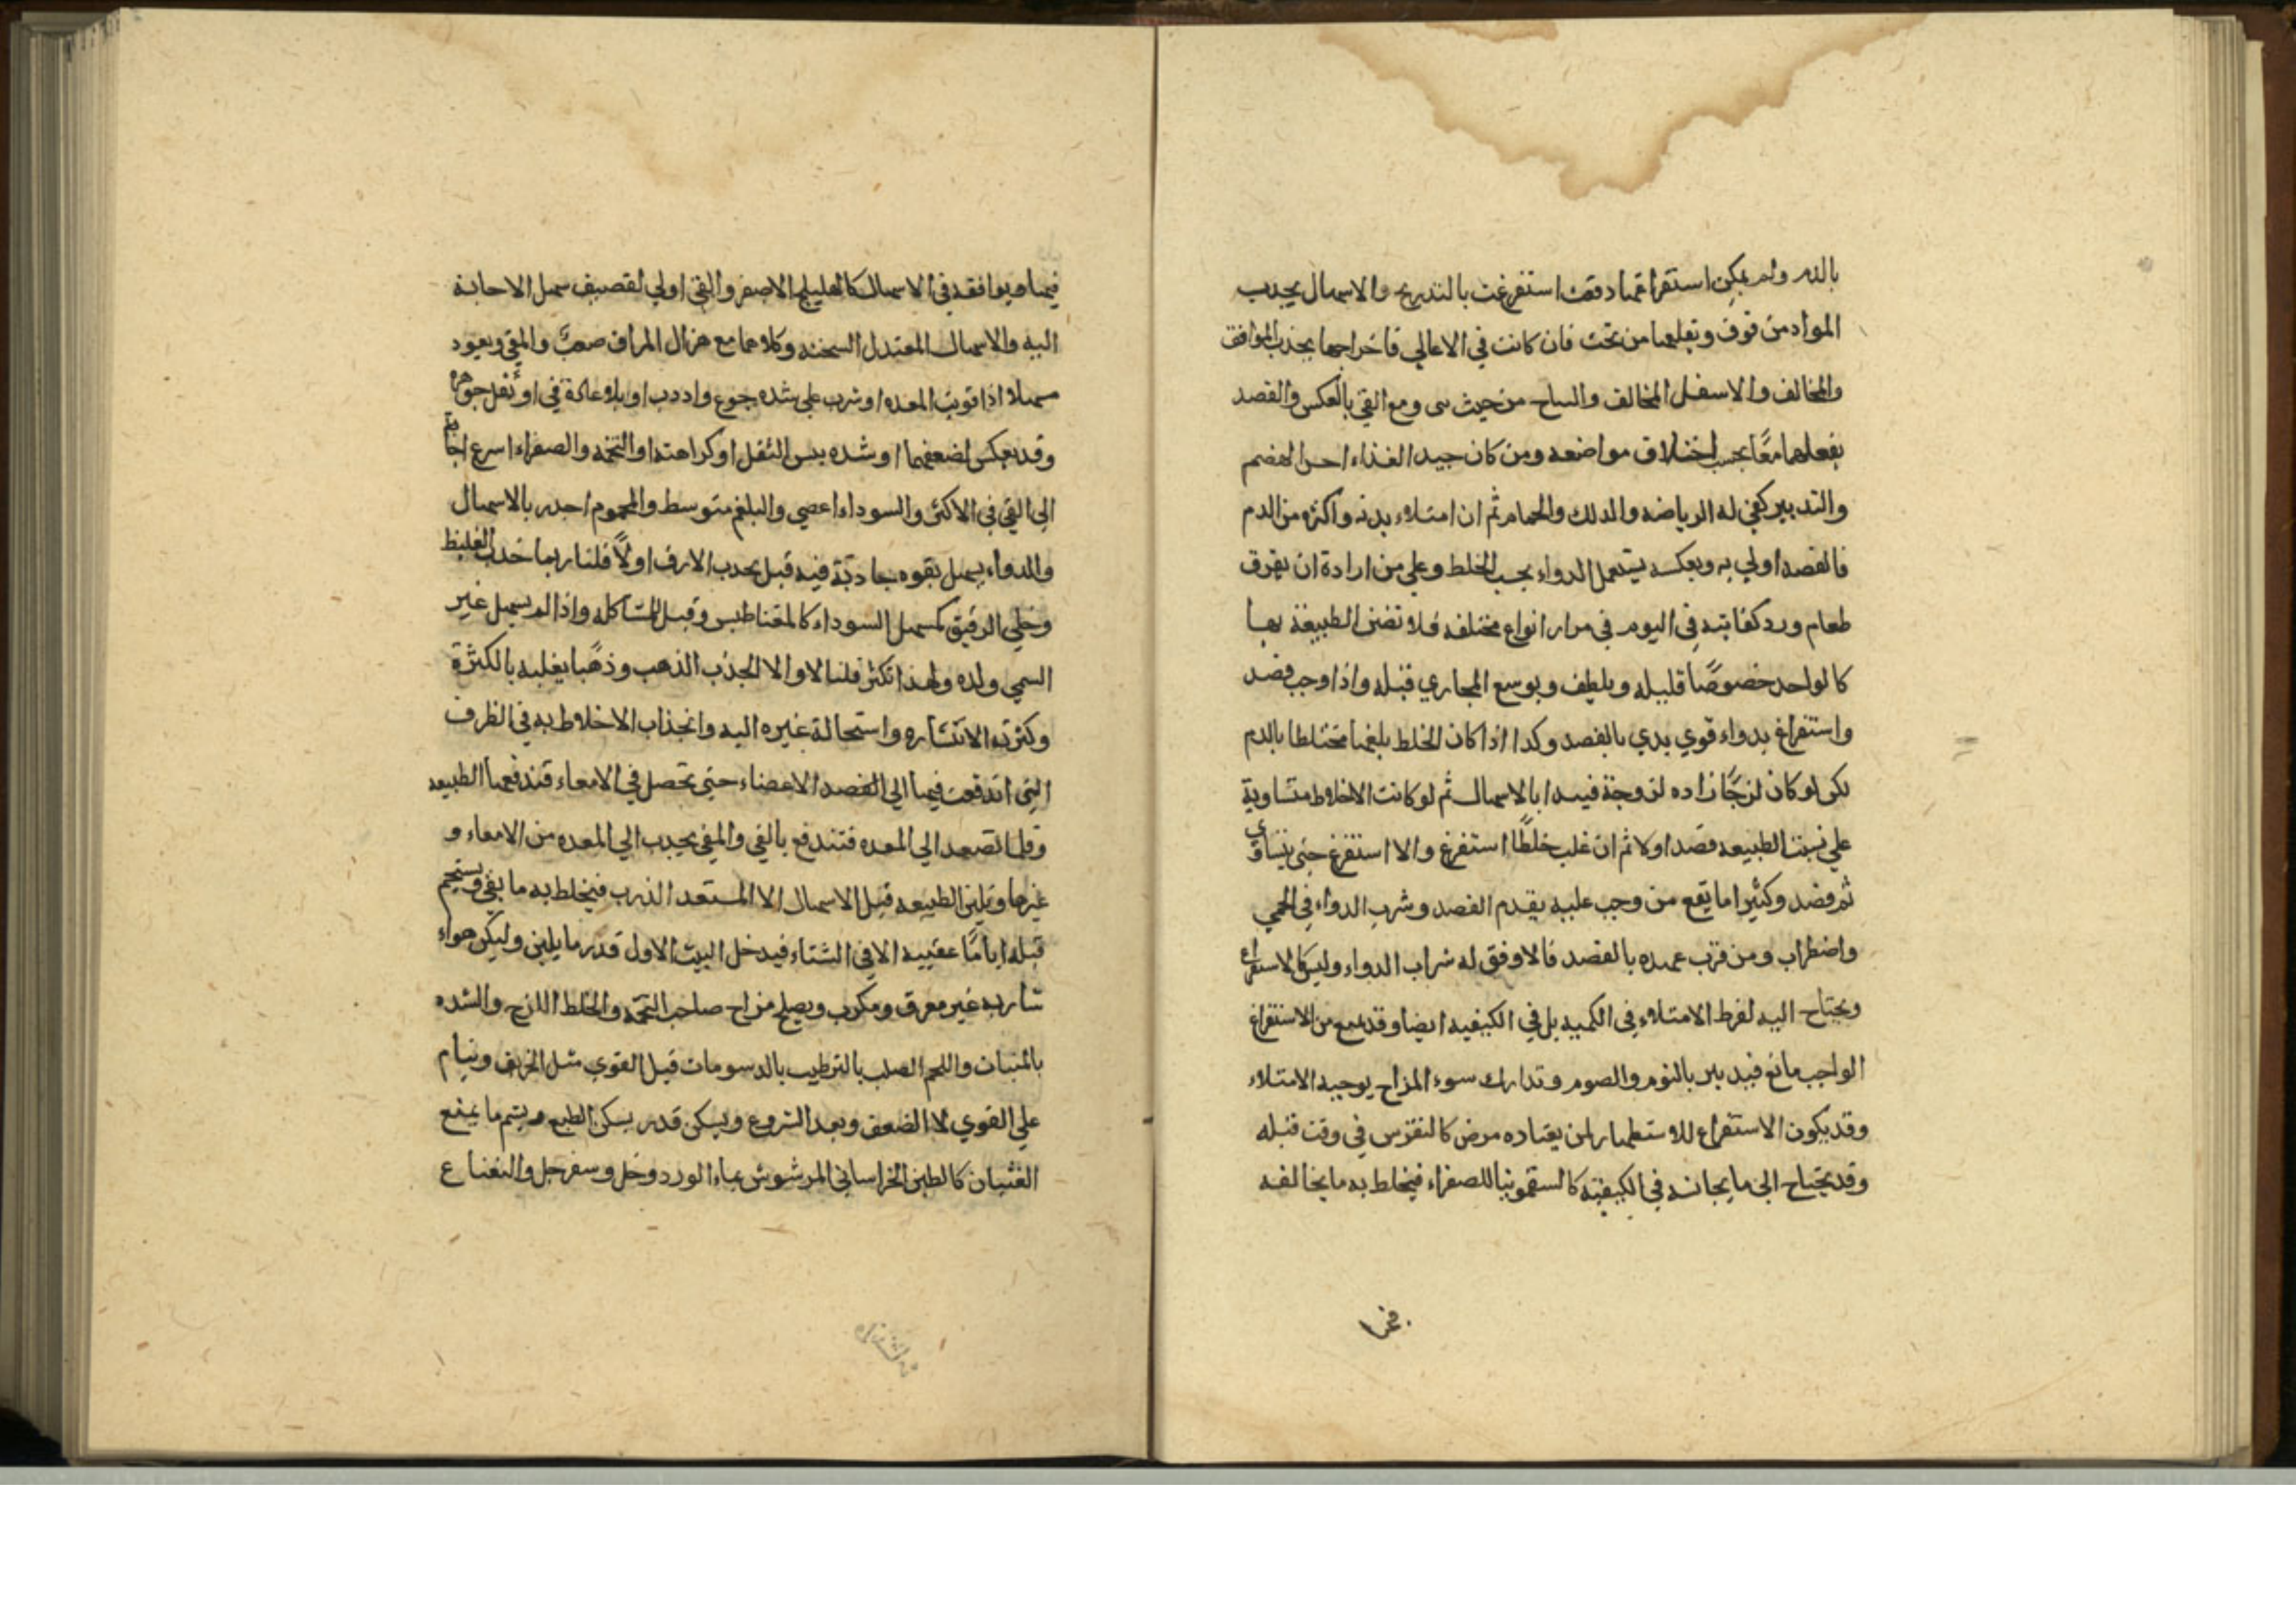 بالذ ولم يمكن استفراغها دفعة استفرغت بالتدريج والاسهال يجذب
المواد من فوق ويقلعها من تحت فان كانت في الاعالي فاخراجها بجذب الموافق
والمخالف والاسفل المخالف من حيث ومع القي بالعكس والفصد
يفعلهما معًا بحسب اختلاف مواضعه ومن كان جيد الغذاء الهضم
والتدبير كفي له الرياضه والدلك والحمام ثم ان امتلاء بدنه واكثره من الدم
فالفصد اولي به وبعكسه يستعمل الدواء بحسب الخلط وعلي من ارادة ان
طعام ورد كفايته في اليوم في مرار انواع مختلفه فلا تضن الطبيعة بها
كالواحد خصوصًا قليله ويلطف ويوسع المجاري قبله واذا وجب فصد
واستفراغ بدواء قوي بدي بالفصد وكدا اذا كان الخلط بلغميا مختلطا بالدم
لكن لو كان لزجًا زاده لزوجة فيبدا بالاسهال ثم لو كانت الاخلاط متساوية
علي نسبت الطبيعه فصد اولا ثم ان غلب خلطًا استفرغ والا استفرغ حتي يتساوي
ثم فصد وكثيرا ما يقع من وجب عليه بقدم الفصد وشرب الدواء في الحمي
واضطراب ومن قرب عهده بالفصد فالاوفق له شراب الدواء وليس كل الاستفراغ
ويحتاج اليه لفرط الامتلاء في الكميه بل في الكيفيه ايضا وقد يمنع من الاستفراغ
الواجب مانع فيدبر بالنوم والصوم وتدارك سوء المزاج يوجبه الامتلاء
وقد يكون الاستفراغ للاستظهار لمن يعتاده مرض كالنقرس في وقت قبله
وقد يحتاج الي ما يجانسه في الكيفيته كالسقمونيا للصفراء فيخلط به ما يخالفه
فيها ويوافقه في الاسهال كالهليلج الاصفر والقي اولي لقصيف سهل الاجابة
اليه والاسهال المعتدل السحنه وكلاهما مع هزال المراق صعبٌ والمقي ويعود
مسهلا اذا قويت المعده او شرب علي شده جوع او او ثقل جوهره
وقد يعكس لضعفهما او شده يبس الثفل او كراهته او التخمه والصفراء اسرع اجابة
الي القي في الاكثر والسوداء اعصي والبلغم متوسط والمحموم اجدر بالاسهال
والدواء يسهل بقوه جاذبة فيه قبل يجذب الارق اولاً قلنا ربما جذب الغليظ
وخلي الرقيق كمسهل السوداء كالمقناطيس وقيل للمشاكله واذا لم يسهل غير
السمي ولده ولهذا تكثر قلنا لا والا لجذب الذهب وذهبا يغلبه بالكثرة
وكثرته لانتشاره واستحالة غيره اليه وانجذاب الاخلاط به في الظرف
التي اندفعت فيها الي الفصد الاعضاء حتي تحصل في الامعاء فتدفعها الطبيعه
وقلما تصعد الي المعده فتندفع بالقي والمقي يجذب الي المعده من الامعاء و
غيرها ويلين الطبيعه قبل الاسهال الا المستعد الذرب فيخلط به ما يقي ويستحم
قبله اياما عقيبه الا في الشتاء فيدخل البيت الاول قدر ما يلين وليكن هواء
شاربه غير معرق ومكرب ويصلح مزاج صاحب التخمه والخلط اللزج والسده
واللحم الصلب بالترطيب بالدسومات قبل القوي مثل الخريف وينام
علي القوي لا الضعف وبعد الشروع ويسكن قدر يسكن الطبع ويشم ما يمنع
الغثيان كالطين الخراساني المرشوش بماء الورد وخل وسفرجل والنعناع